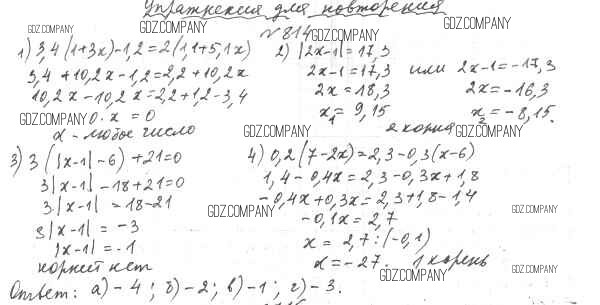 Упражнения для повторения
№814
1) 3,4(1+3x)-1,2=2(1,1+5,1x)
3,4+10,2x-1,2=2,2+10,2x
10,2x-10,2x=2,2+1,2-3,4
0·x=0
x - любое число
2) |2x-1|=17,3
2x-1=17,3 или 2x-1=-17,3
2x=18,3 2x=-16,3
x₁=9,15 x₂=-8,15.
2 корня
3) 3(|x-1|-6)+21=0
3|x-1|-18+21=0
3·|x-1|=18-21
3|x-1|=-3
|x-1|=-1
корней нет
4) 0,2(7-2x)=2,3-0,3(x-6)
1,4-0,4x=2,3-0,3x+1,8
-0,4x+0,3x=2,3+1,8-1,4
-0,1x=2,7
x=2,7:(-0,1)
x=-27. 1 корень
Ответ: а)-4; б)-2; в)-1; г)-3.
GDZ.COMPANY
GDZ.COMPANY
GDZ.COMPANY
GDZ.COMPANY
GDZ.COMPANY
GDZ.COMPANY
GDZ.COMPANY
GDZ.COMPANY
GDZ.COMPANY
GDZ.COMPANY
GDZ.COMPANY
GDZ.COMPANY